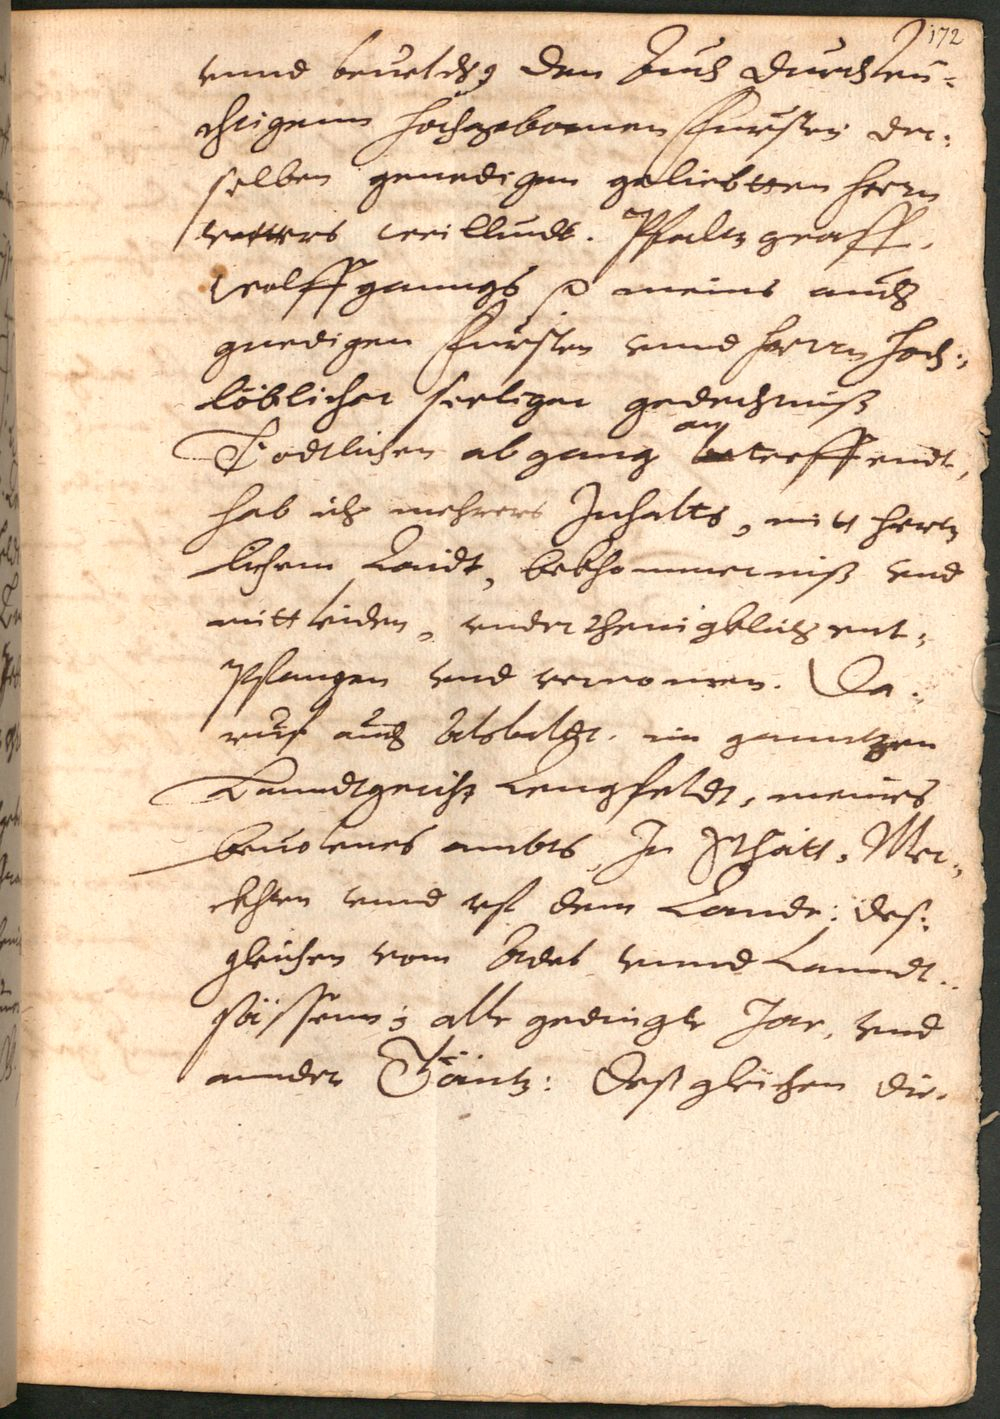 172
vnnd beuelch, den Auch Durchleu-
chtigenn hochgebornen Fursten der-
selben genedigen geliebtten herrn
vetters weillundt. Pfaltzgraff.
Wolffganngs p meins auch
gnedigen Fursten vnnd herrn hoch-
löblicher seeliger gedechtniß
Todtlichen abganng an betreffendt,
hab ich mehrers Inhalts, mitt hertz
lichem Laidt, bekhommerniß vnd
mittleiden, vnderthenigklich ent-
Pfangen vnd vernomen. Da-
ruf auch Alsbaldt. im ganntzen
Lanndtgericht Lengfeldt, meines
beuolenes ambts, In Stätt, Mer-
ckhten vnnd vf dem Lande: deß-
gleichen vom Adel vnnd Lanndt-
sässenn; alle gedingte Jar, vnd
annder Täntz: Deßgleichen die-